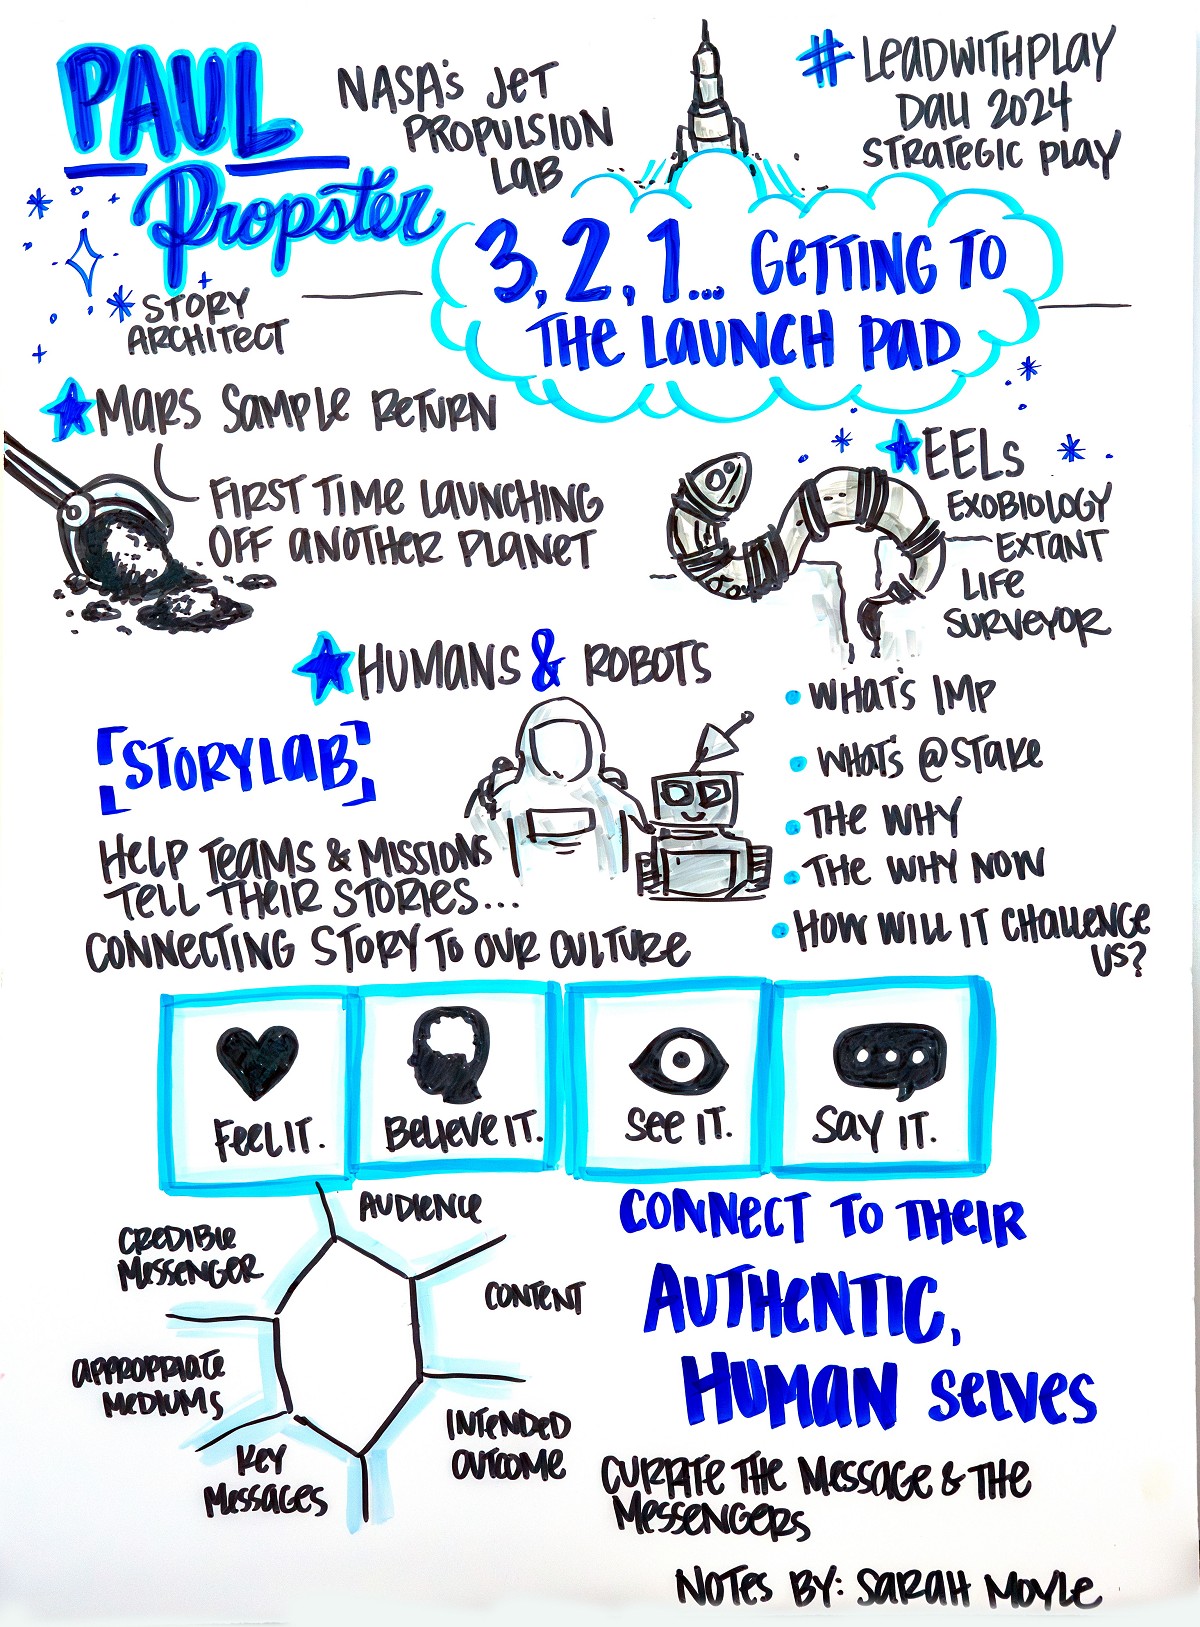 PAUL
Propster
NASA's JET
PROPULSION
LAB
# LEADWITHPLAY
DALI 2024
STRATEGIC PLAY
3, 2, 1... GETTING TO
THE LAUNCH PAD
* STORY
ARCHITECT
MARS SAMPLE RETURN
FIRST TIME LAUNCHING
OFF ANOTHER PLANET
EELS
EXOBIOLOGY
EXTANT
LIFE
SURVEYOR
HUMANS & ROBOTS
[STORYLAB]
HELP TEAMS & MISSIONS
TELL THEIR STORIES...
CONNECTING STORY TO OUR CULTURE
• WHAT'S IMP
• WHAT'S @STAKE
• THE WHY
• THE WHY NOW
• HOW WILL IT CHALLENGE
US?
FEEL IT.
BELIEVE IT.
SEE IT.
SAY IT.
AUDIENCE
CREDIBLE
MESSENGER
CONTENT
APPROPRIATE
MEDIUMS
INTENDED
OUTCOME
KEY
MESSAGES
CONNECT TO THEIR
AUTHENTIC,
HUMAN SELVES
CURRATE THE MESSAGE & THE
MESSENGERS
NOTES BY: SARAH MOYLE